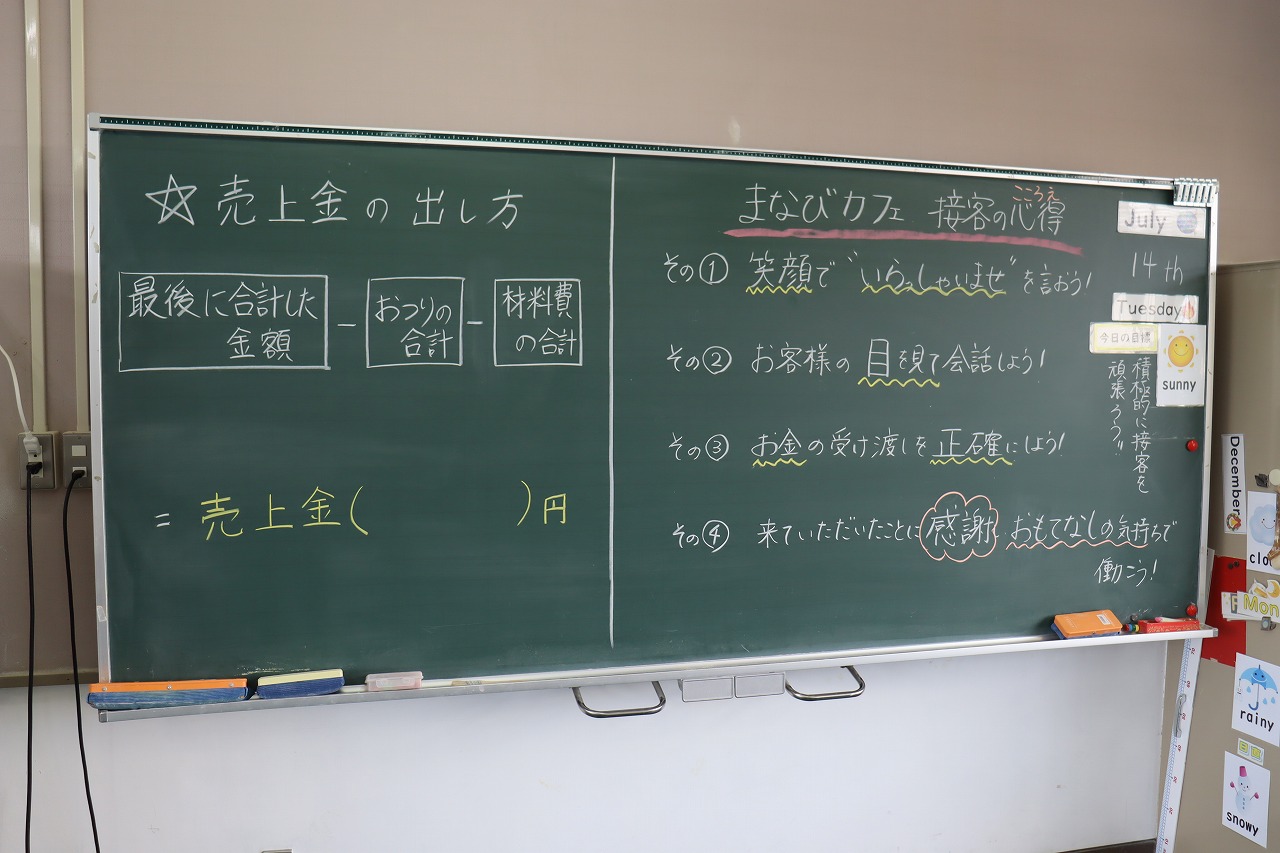 ☆売上金の出し方
最後に合計した
金額
－
おつりの
合計
－
材料費
の合計
= 売上金(　　　　)円
まなびカフェ 接客の心得
こころえ
その① 笑顔で"いらっしゃいませ"を言おう!
その② お客様の目を見て会話しよう!
その③ お金の受け渡しを正確にしよう!
その④ 来ていただいたことに感謝 おもてなしの気持ちで
働こう!
July
14th
Tuesday
今日の目標
積極的に接客を
頑張ろう!!
sunny
December
Mon
rainy
snowy